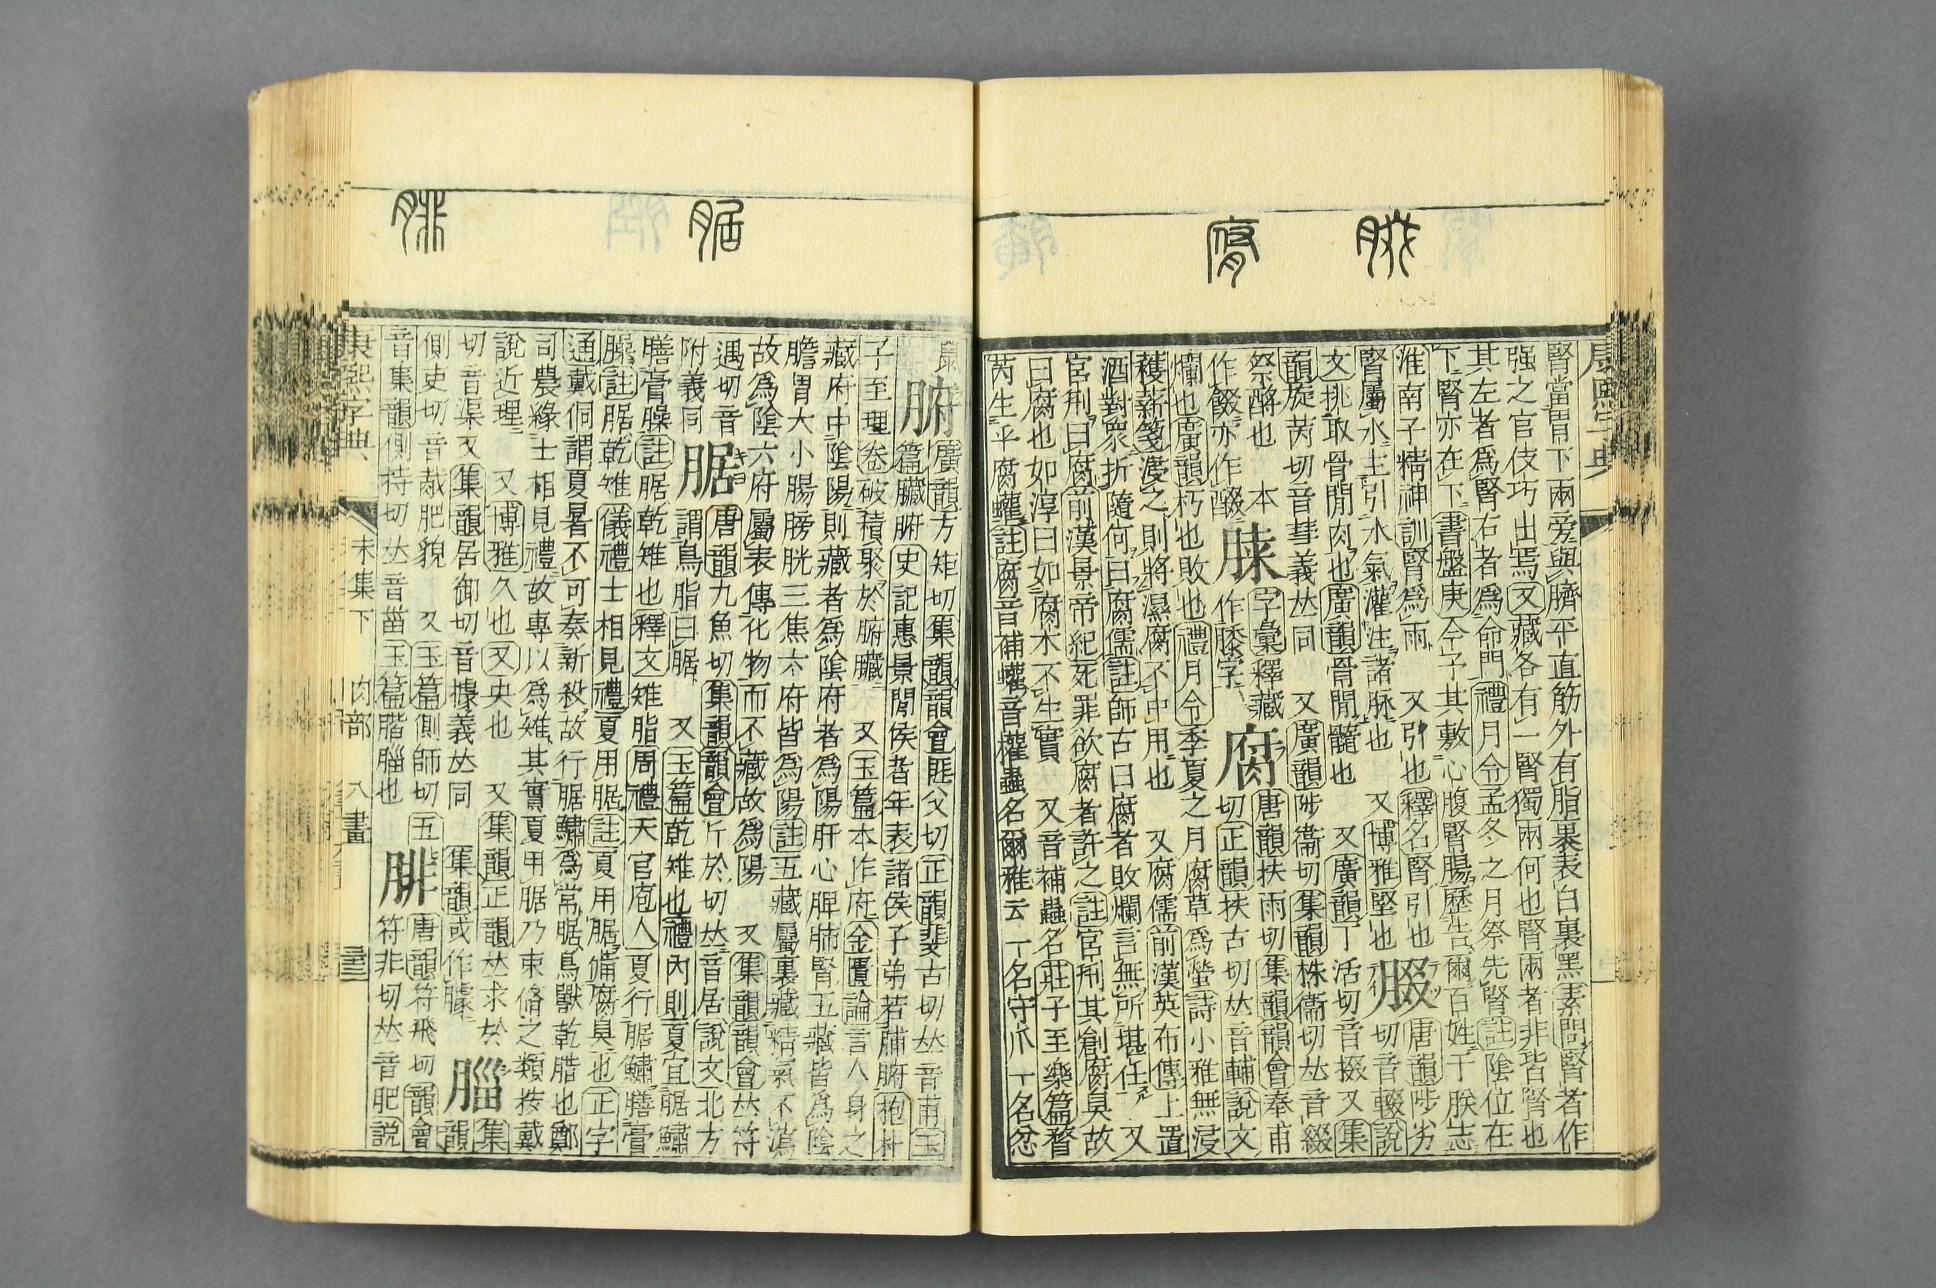 腎當胃下兩旁與臍平直筋外有脂裹表白裏黑素問腎者作
强之官伎巧出焉又藏各有一腎獨兩何也腎兩者非皆腎也
其左者爲腎右者爲命門禮月令孟冬之月祭先腎註陰位在
下腎亦在下書盤庚今予其敷心腹腎腸歷告爾百姓于朕志
淮南子精神訓腎爲雨 又引也釋名腎引也
腎屬水主引水氣灌注諸脉也 又博雅堅也
腏
唐韻陟劣
切音輟說
文挑取骨閒肉也廣韻骨閒髓也 又廣韻丁活切音掇又集
韻旋芮切音彗義𠀤同 又廣韻陟衞切集韻株衞切𠀤音綴
祭酹也 本
作餟亦作醊
脨
字彙釋藏
作膝字
腐
唐韻扶雨切集韻韻會奉甫
切正韻扶古切𠀤音輔說文
爛也廣韻朽也敗也禮月令季夏之月腐草爲螢詩小雅無浸
穫薪箋浸之則將濕腐不中用也 又腐儒前漢英布傳上置
酒對衆折隨何曰腐儒註師古曰腐者敗爛言無所堪任 又
宮刑曰腐前漢景帝紀死罪欲腐者許之註宮刑其創腐臭故
曰腐也如淳曰如腐木不生實 又音補蟲名莊子至樂篇瞀
芮生乎腐蠸註腐音補蠸音權蟲名爾雅云一名守瓜一名忿
康熙字典
鼠
腑
廣韻方矩切集韻韻會匪父切正韻斐古切𠀤音甫玉
篇臟腑史記惠景閒侯者年表諸侯子弟若肺腑抱朴
子至理卷破積聚於腑臟 又玉篇本作府金匱論言人身之
藏府中陰陽則藏者爲陰府者爲陽肝心脾肺腎五藏皆爲陰
膽胃大小腸膀胱三焦六府皆爲陽註五藏屬裏藏精氣不瀉
故爲陰六府屬表傳化物而不藏故爲陽 又集韻韻會𠀤符
遇切音
附義同
腒
唐韻九魚切集韻韻會斤於切𠀤音居說文北方
謂鳥腊曰腒 又玉篇乾雉也禮內則夏宜腒鱐
膳膏臊註腒乾雉也釋文雉腊周禮天官庖人夏行腒鱐膳膏
臊註腒乾雉儀禮士相見禮夏用腒註夏用腒備腐臭也正字
通戴侗謂夏暑不可奏新殺故行腒鱐爲常腒鳥獸乾腊也鄭
司農緣士相見禮故專以爲雉其實夏用腒乃束脩之類按戴
說近理 又博雅久也又央也 又集韻正韻𠀤求於
切音渠又集韻居御切音據義𠀤同 集韻或作䐚
腦
集韻
側吏切音胾肥貌 又玉篇側師切五
音集韻側持切𠀤音菑玉篇腦腦也
腓
唐韻符飛切韻會
符非切𠀤音肥說
康熙字典 未集下 肉部 八畫